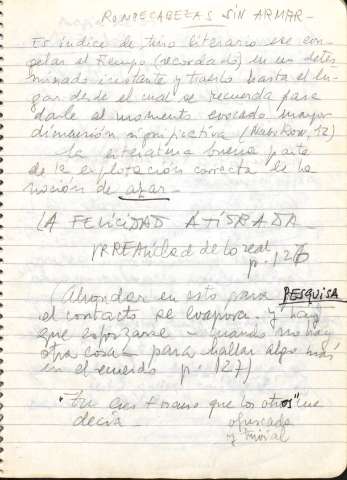 ROMPECABEZAS SIN ARMAR-
Es índice de tino literario ese con-
gelar el tiempo (recordado) en un deter-
minado instante y traerlo hasta el lu-
gar desde el cual se recuerda para
darle al momento evocado mayor
dimensión significativa (Nabokov, 12)
La literatura buena parte
de la explotación correcta de la
noción de azar.
LA FELICIDAD ATISBADA
IRREALIDAD de lo real
p. 126
(Ahondar en esto para PESQUISA
el contacto se evapora. y hay
que esforzarse - cuando no hay
otra cosa - para hallar algo más
en el recuerdo p. 127)
que los otros
decía ofuscado
y trivial